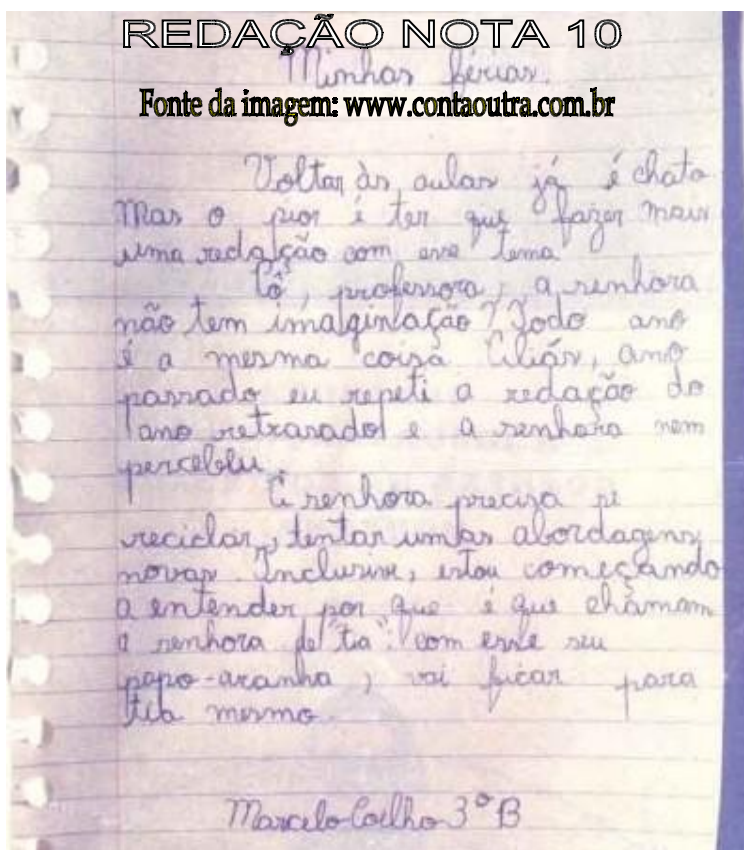 REDAÇÃO NOTA 10
Minhas férias.
Fonte da imagem: www.contaoutra.com.br
Voltar às aulas já é chato
Mas o pior é ter que fazer mais
uma redação com esse tema
Cô, professora, a senhora
não tem imalginlação? Todo ano
é a mesma coisa Cliás, ano
passado eu repeti a redação do
ano retrasado e a senhora nem
percebeu.
C senhora precisa se
reciclar, tentar umas abordagens
novas. Inclusive, estou começando
a entender por que é que chamam
a senhora de "tia": com esse seu
papo-aranha, vai ficar para
tia mesmo.
Marcelo Coelho 3º B